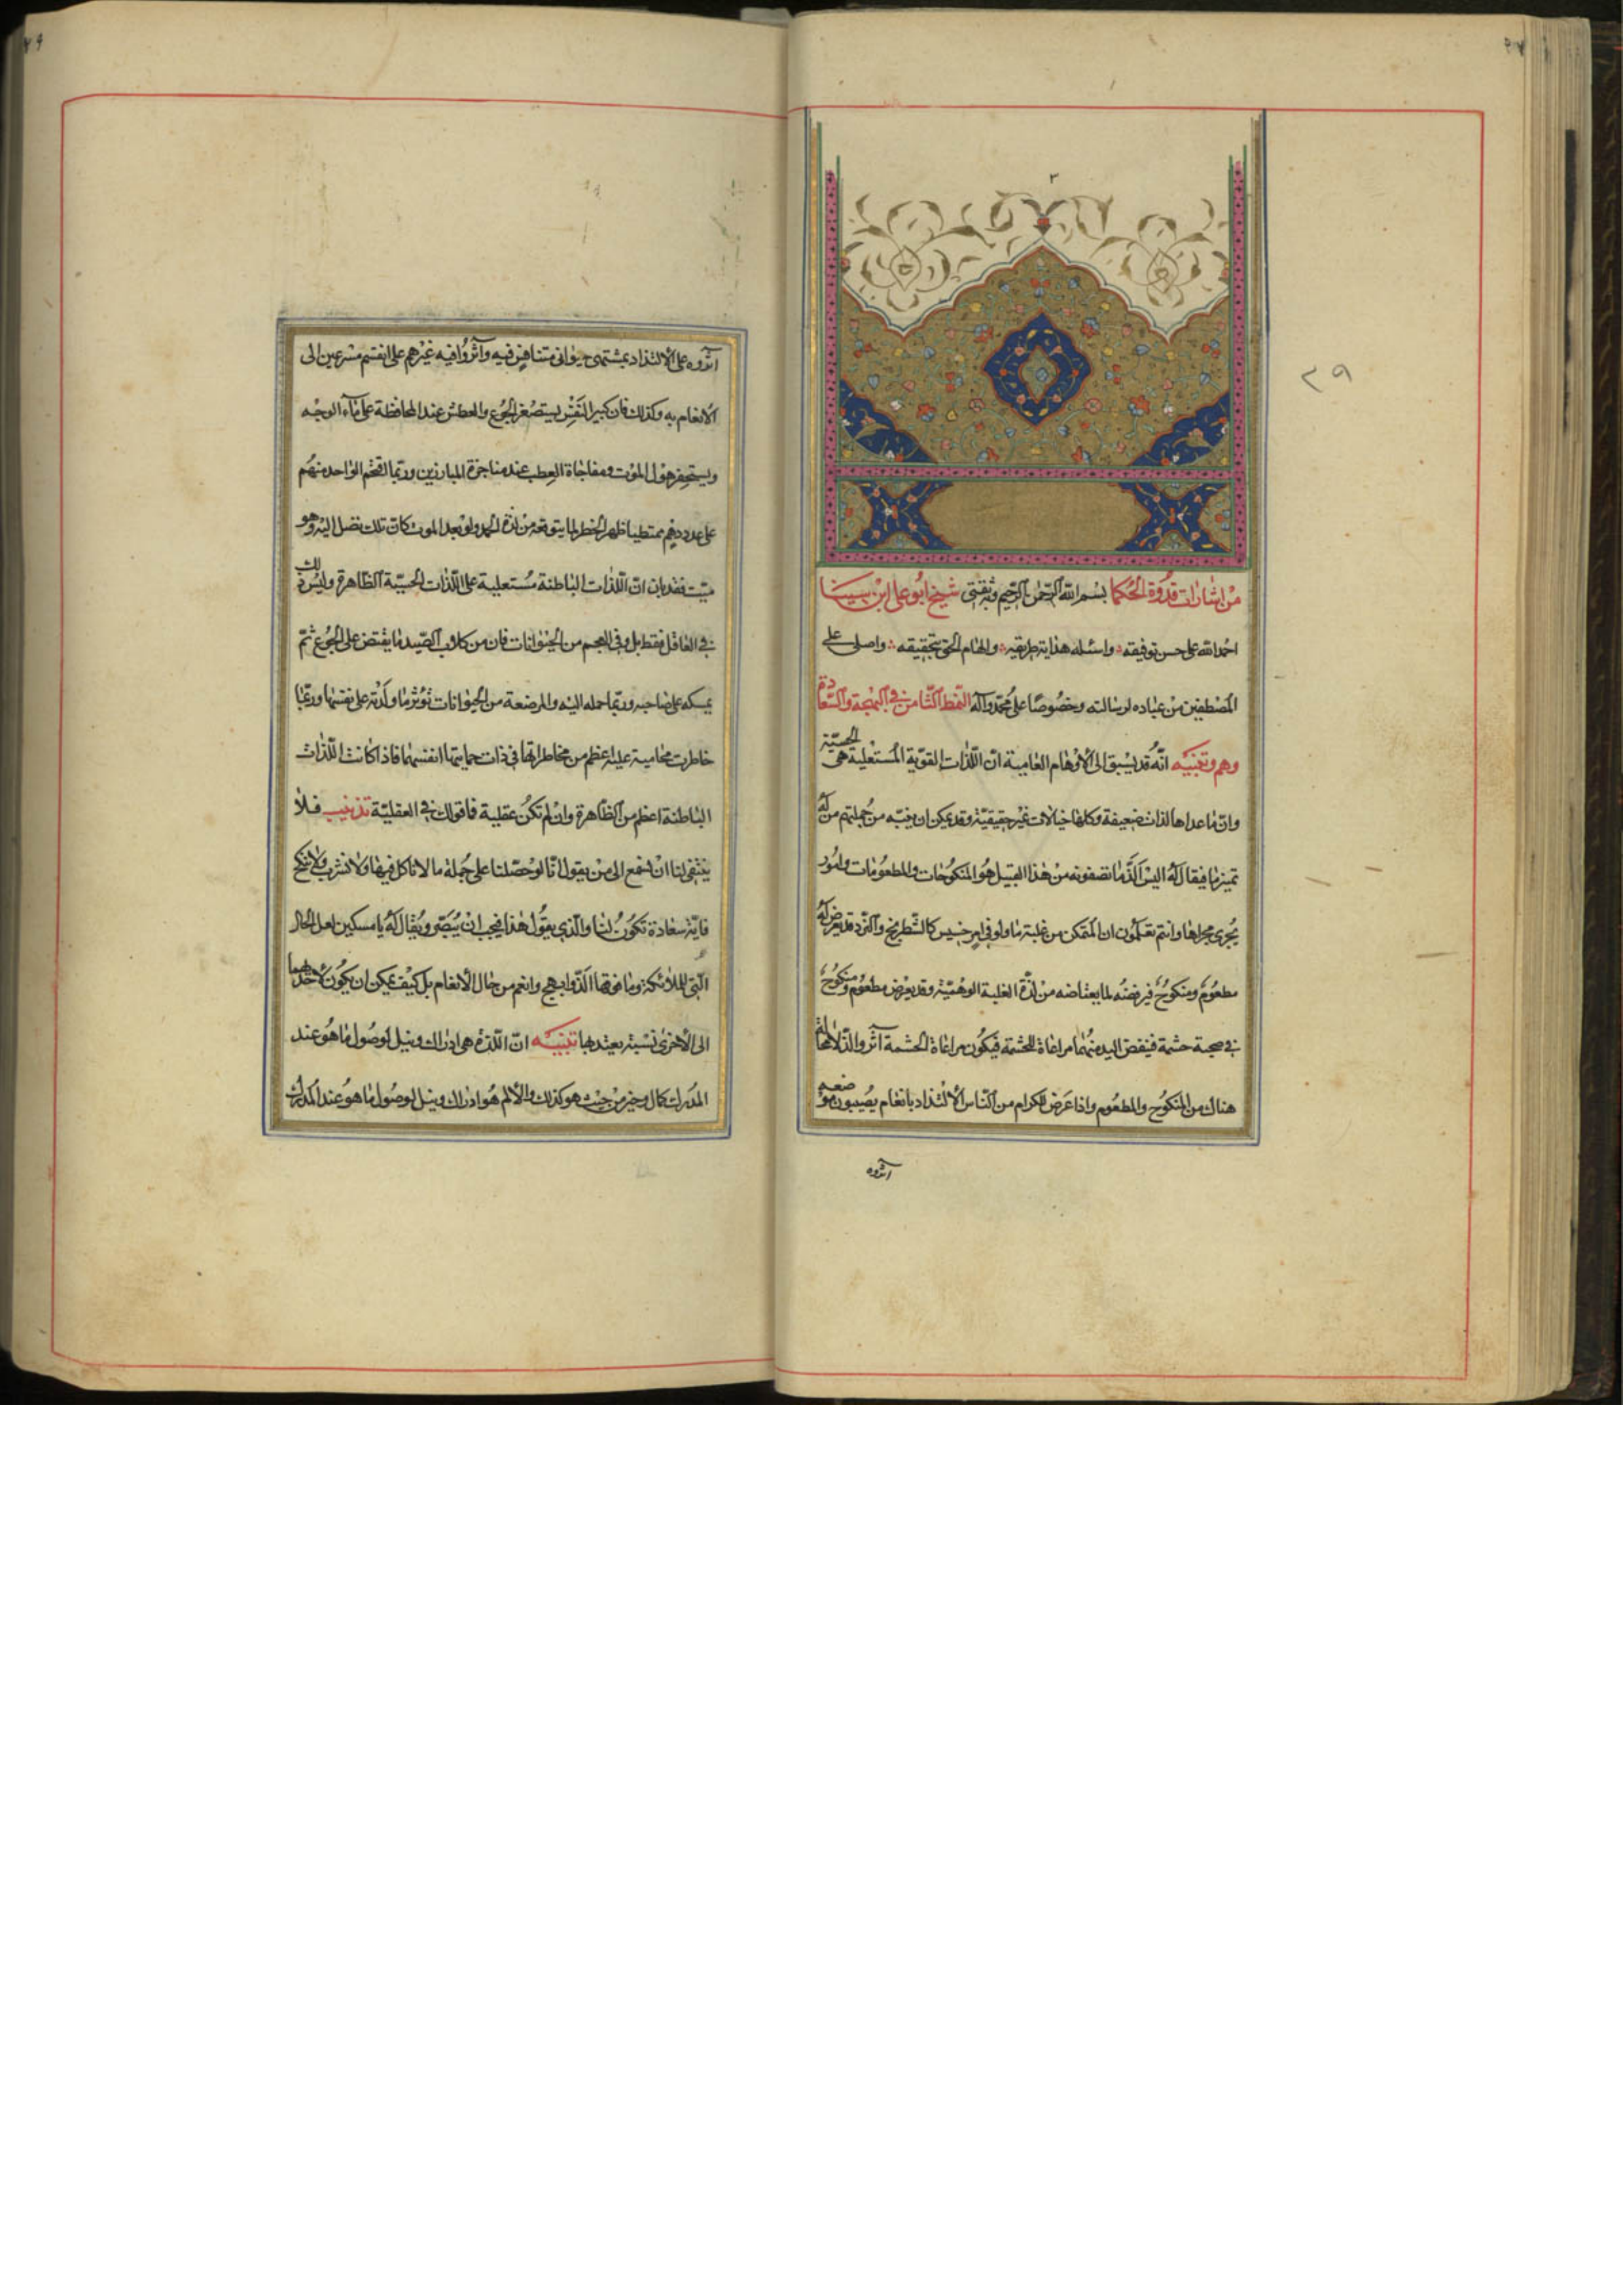 من اشارات قدوة الحكما بسم الله الرحمن الرحیم وبه ثقتی شیخ ابو علی ابن سینا
احمد الله علی حسن توفیقه واسئله هدایة طریقیه والهام الحق بتحقیقه واصلی علی
المصطفین من عباده لرسالته وخصوصًا علی محمد وآله النمط الثامن فی البهجة والسعادة
وهم وتنبیه انه قد یسبق الی الاوهام العامیة ان اللذات القویة المستعلیة هی الحسیة
وان ما عداها لذات ضعیفة وکلها خیالات غیر حقیقیة وقد یمکن ان ینبه من جملتهم من له
تمیز ما فیقال له الیس الذ ما تصفونه من هذا القبیل هو المنکوحات والمطعومات وامور
یجری مجراها وانتم تعلمون ان المتمکن من غلبة ما ولو فی امر خسیس کالشطرنج والنرد قد یعرض له
مطعوم ومنکوح فیرفضه لما یعتاضه من لذة الغلبة الوهمیة وقد یعرض مطعوم ومنکوح
فی صحبة حشمة فینفض الید منهما مراعاة للحشمة فیکون مراعاة الحشمة آثر والذ لا محالة
هناک من المنکوح والمطعوم واذا عرض للکرام من الناس الالتذاذ بانعام یصیبون موضعه
آثروه
آثروه علی الالتذاذ بمشتهی حیوانی متنافس فیه وآثروا فیه غیرهم علی انفسهم مسرعین الی
الانعام به وکذلك فان کبیر النفس یستصغر الجوع والعطش عند المحافظة علی ماء الوجه
ویستحقر هول الموت ومفاجاة العطب عند مناجزة المبارزین وربما اقتحم الواحد منهم
علی عدد دهم ممتطیا ظهر الخطر لما یتوقعه من لذة الحمد ولو بعد الموت کان تلك تصل الیه وهو
میت فقد بان ان اللذات الباطنة مستعلیة علی اللذات الحسیة الظاهرة ولیس ذلك
فی العاقل فقط بل وفی العجم من الحیوانات فان من کلاب الصید ما یقتنص علی الجوع ثم
یمسکه علی صاحبه وربما حمله الیه والمرضعة من الحیوانات تؤثر ما ولدته علی نفسها وربما
خاطرت محامیة علیه اعظم من مخاطراتها فی ذات حمایتها انفسها فاذا کانت اللذات
الباطنة اعظم من الظاهرة وان لم تکن عقلیة فما قولك فی العقلیة تذنیب فلا
ینبغی لنا ان نسمع الی من یقول انا لو حصلنا علی جملة ما لا ناکل فیها ولا نشرب ولا ننکح
فایة سعادة تکون لنا والذی یقول هذا فیجب ان یبصر ویقال له یا مسکین لعل الحال
التی للملائکة وما فوقها الذ وابهج وانعم من حال الانعام بل کیف یمکن ان یکون لاحدیهما
الی الاخری نسبة یعتد بها تنبیه ان اللذة هی ادراك ونیل لوصول ما هو عند
المدرك کمال وخیر من حیث هو کذلك والالم هو ادراك ونیل لوصول ما هو عند المدرك